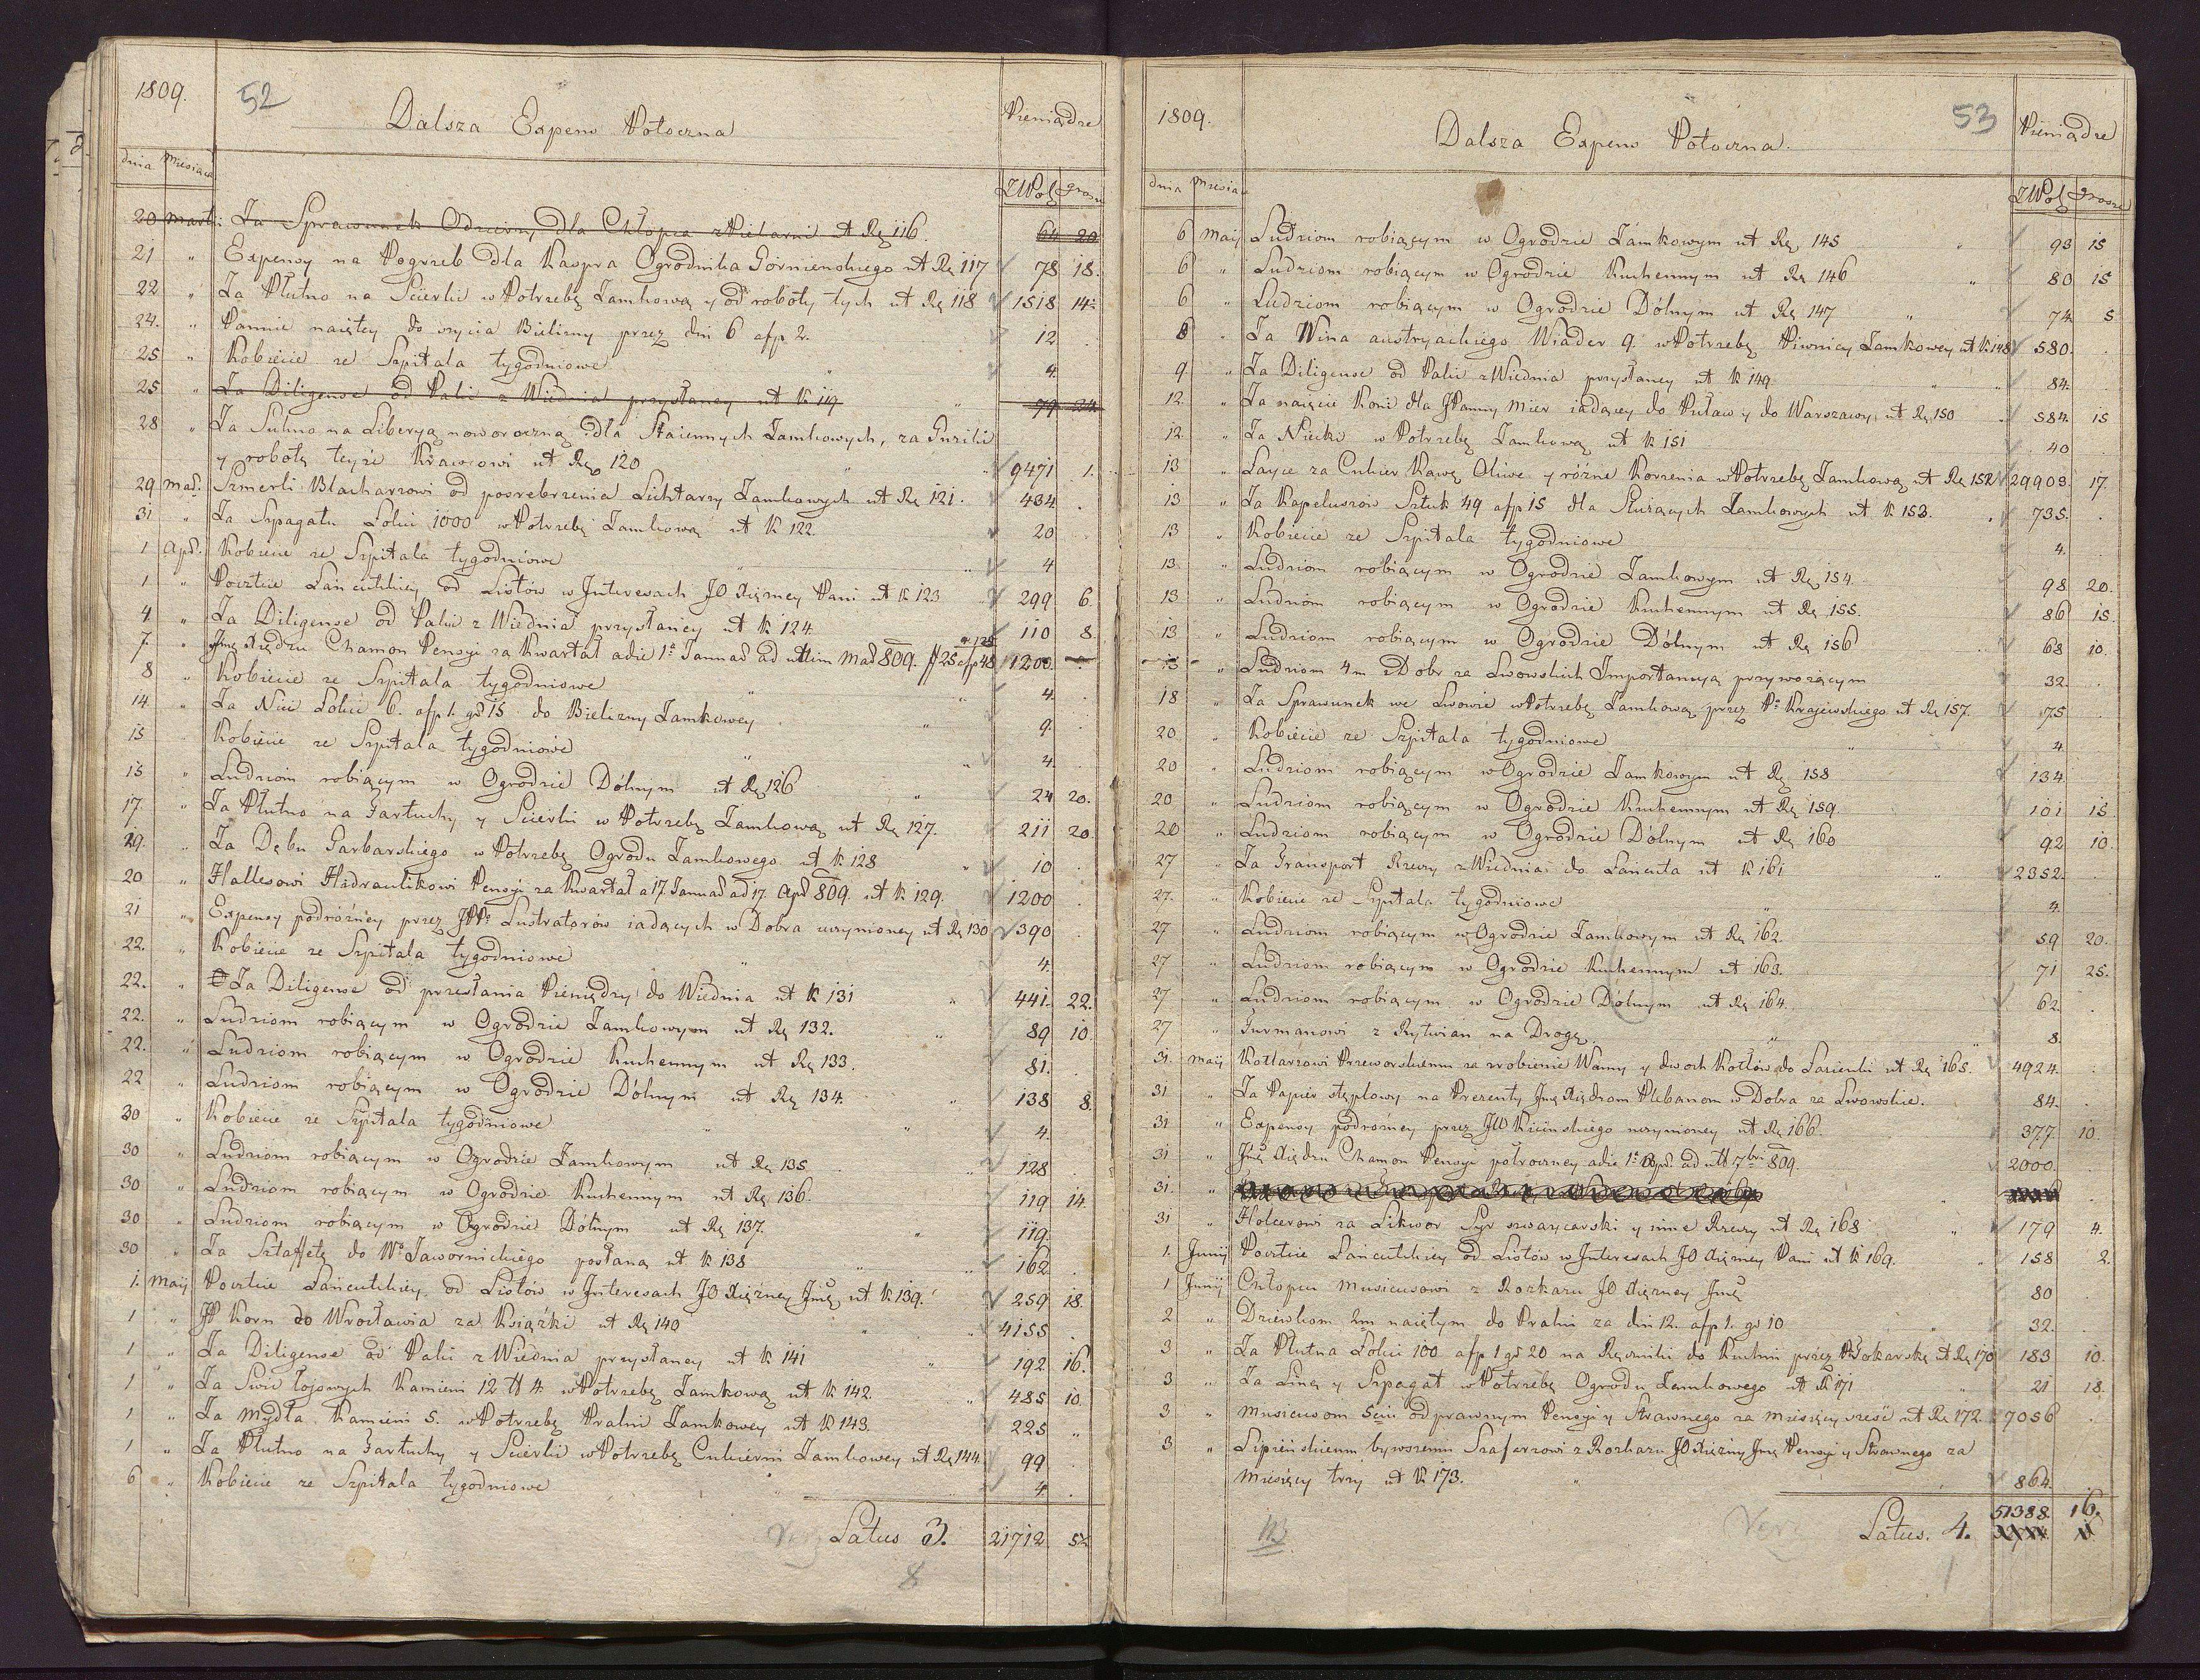 1809.
52
Dalsza Expens Potoczna
Pieniądze
dnia Miesiąca
ZłPol grosze
20 Martii Za Sprawunek Odzieży dla Chłopca z Piekarni ut Rg 116. 64 20
21 " Expensy na Pogrzeb dla Kaspra Ogrodnika Górnienskiego ut Rg 117 78 18.
22 " Za Płutno na Scierki w Potrzebę Zamkową y od roboty tych ut Rg 118 1518 14
24. " Pannie naiętey do szycia Bielizny przez dni 6 a fp 2. 12 .
25 " Kobiecie ze Szpitala tygodniowe 4.
25 " Za Diligense od Paki z Wiednia przysłaney ut K 119 " 79 24
28 " Za Sukno na Liberyą noworoczną dla Staiennych Zamkowych, za Guziki
y robotę teyże Krawcowi ut Rg 120 " " 9471 1.
29 Mar. Szmerli Blacharzowi od posrebrzenia Lichtarzy Zamkowych ut Rg 121. 434 .
31 " Za Szpagatu Łokci 1000 w Potrzebę Zamkową ut K 122. 20
1 Apr. Kobiecie ze Szpitala tygodniowe " " 4
1 " Poczcie Łańcutskiey od Listów w Interesach JO Xiężney Pani ut K 123 299 6.
4 " Za Diligense od Paki z Wiednia przysłaney ut K 124 110 8.
7. " Jmę Xiędzu Chamon Pensyi za Kwartał a die 1a Januar ad ultim Mar 809. # 25 a fp 48 ut 125 1200 .
8 " Kobiecie ze Szpitala tygodniowe " 4.
14 " Za Nici Łokci 6. a fp 1. gr 15 do Bielizny Zamkowey " 9.
15 " Kobiecie ze Szpitala tygodniowe " " 4.
15 " Ludziom robiącym w Ogrodzie Dólnym ut Rg 126 " 24 20.
17. " Za Płutno na Fartuchy y Scierki w Potrzebę Zamkową ut Rg 127. 211 20.
19. " Za Dębu Garbarskiego w Potrzebę Ogrodu Zamkowego ut K 128 " 10
20 " Hallesowi Hidraulikowi Pensyi za Kwartał a 17. Januar ad 17. Apr 809. ut K 129. 1200
21 " Expensy podróżney przez JPPs Lustratorów iadących w Dobra uczynioney ut Rg 130 390
22. " Kobiecie ze Szpitala tygodniowe " 4.
22. " Za Diligense od przesłania Pieniędzy do Wiednia ut K 131 " 441. 22.
22. " Ludziom robiącym w Ogrodzie Zamkowym ut Rg 132. " 89 10.
22. " Ludziom robiącym w Ogrodzie Kuchennym ut Rg 133. 81.
22 " Ludziom robiącym w Ogrodzie Dólnym ut Rg 134. " 138 8.
30 " Kobiecie ze Szpitala tygodniowe " " 4.
30 " Ludziom robiącym w Ogrodzie Zamkowym ut Rg 135. " 128
30 " Ludziom robiącym w Ogrodzie Kuchennym ut Rg 136. 119 14.
30 " Ludziom robiącym w Ogrodzie Dólnym ut Rg 137. " 119.
30 " Za Sztaffetę do Wo Jawornickiego posłaną ut K 138 " " 162 .
1. Maij Poczcie Łańcutskiey od Listów w Interesach JO Xiężney Jmę ut K 139. 259 18.
1 " JP Korn do Wrocławia za Książki ut Rg 140 " " 4155 .
1 " Za Diligense od Paki z Wiednia przysłaney ut K 141 " 192 16.
1 " Za Swic łojowych Kamieni 12 tt 4 w Potrzebę Zamkową ut K 142. " 485 10.
1 " Za Mydła Kamieni 5. w Potrzebę Pralni Zamkowey ut K 143. 225 "
1 " Za Płutno na Fartuchy y Scierki w Potrzebę Cukierni Zamkowey ut Rg 144. 99
6 " Kobiecie ze Szpitala tygodniowe " 4. .
Latus 3. 21712. 5
8
1809.
53
Dalsza Expens Potoczna.
Pieniądze
dnia Miesiąca
ZłPol grosze
6 Maij Ludziom robiącym w Ogrodzie Zamkowym ut Rg 145 " 93 15
6 " Ludziom robiącym w Ogrodzie Kuchennym ut Rg 146 " 80 15
6 " Ludziom robiącym w Ogrodzie Dólnym ut Rg 147 " 74 5
8 " Za Wina austryackiego Wiader 9. w Potrzebę Piwnicy Zamkowey ut K 148 580. .
9. " Za Diligense od Paki z Wiednia przysłaney ut K 149. " " 84.
12. " Za naięcie Koni dla JPanny Mier iadącey do Puław y do Warszawy, ut Rg 150 584. 15
12. " Za Niecki w Potrzebę Zamkową ut K 151 40
13 " Layce za Cukier Kawę Oliwę y różne Korzenia w Potrzebę Zamkową ut Rg 152 29903. 17.
13 " Za Kapeluszow Sztuk 49 a fp 15 dla Służących Zamkowych ut K 153. 735. .
13 " Kobiecie ze Szpitala tygodniowe 4.
13 " Ludziom robiącym w Ogrodzie Zamkowym ut Rg 154. 98 20.
13 " Ludziom robiącym w Ogrodzie Kuchennym ut Rg 155. 86 15.
13 " Ludziom robiącym w Ogrodzie Dólnym ut Rg 156 68 10.
15 " Ludziom 4m z Dobr za Lwowskich Importancyą przywożącym 32. .
18 " Za Sprawunek we Lwowie w Potrzebę Zamkową przez Po Krajewskiego ut Rg 157. 75
20 " Kobiecie ze Szpitala tygodniowe " 4
20 " Ludziom robiącym w Ogrodzie Zamkowym ut Rg 158 134.
20 " Ludziom robiącym w Ogrodzie Kuchennym ut Rg 159. 101 15
20 " Ludziom robiącym w Ogrodzie Dólnym ut Rg 160 92 10.
27 " Za Transport Rzeczy z Wiednia do Łancuta ut K 161 " 2352. .
27. " Kobiecie ze Szpitala tygodniowe " 4.
27 " Ludziom robiącym w Ogrodzie Zamkowym ut Rg 162. 59 20.
27 " Ludziom robiącym w Ogrodzie Kuchennym ut 163. 71 25.
27 " Ludziom robiącym w Ogrodzie Dolnym ut Rg 164. 62. .
27 " Furmanowi z Rytwian na Drogę. " " 8.
31. Maij Kotlarzowi Przeworskiemu za zrobienie Wanny y dwoch Kotłów do Łazienki ut Rg 165. 4924. .
31 " Za Papier stęplowy na Prezenty Jmę Xiędzom Plebanom w Dobra za Lwowskie. 84.
31 " Expensy podrózney przez JW Kicinskiego uczynioney ut Rg 166. 377. 10.
31 " Jmę Xiędzu Chamon Pensyi połroczney a die 1a Apr. ad ult 7bri 809. 2000.
31. "
31 " Holcerowi za Likwor Syr szwaycarski y inne Rzeczy ut Rg 168 " 179 4.
1. Junij Poczcie Łańcutskiey od Listów w Interesach JO Xiężney Pani ut K 169. " 158 2.
1 Junij Chłopcu Musicusowi z Rozkazu JO Xiężney Jmę 80
2 " Dziewkom 2m naiętym do Pralni za dni 12. a fp 1. gr 10 32. .
3 " Za Płutna Łokci 100 a fp 1 gr 20 na Ręczniki do Kuchni przez Tokarskę ut Rg 170 183 10.
3 " Za Linę y Szpagat w Potrzebę Ogrodu Zamkowego ut K 171 " 21 18.
3 " Musicusom 5ciu odprawnym Pensyi y Strawnego za miesięcy sześć ut Rg 172. 7056
3 " Lipińskiemu bywszemu Szafarzowi z Rozkazu JO Xiężny Jmę Pensyi y Strawnego za
Miesięcy trzy ut K 173. " 864.
51388. 16.
Latus. 4.